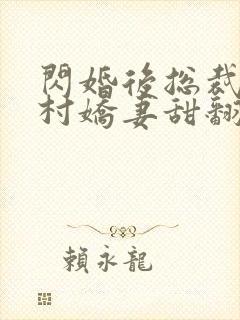 閃婚後總裁
村嬌妻甜翻
賴永龍